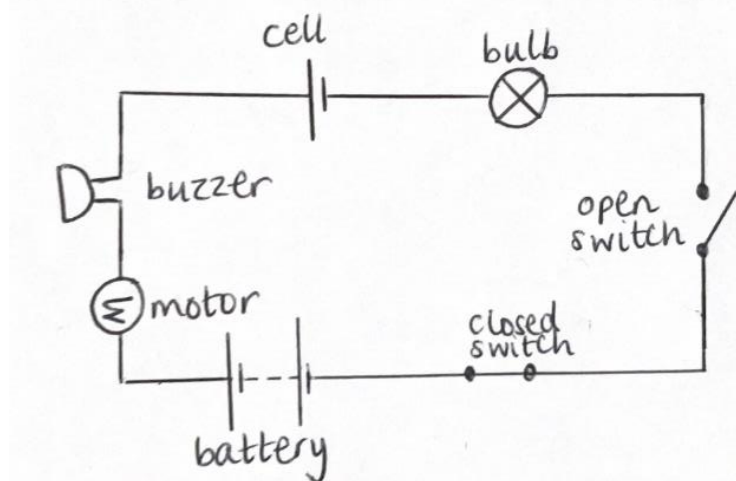 cell
bulb
buzzer
open
switch
M
motor
closed
switch
battery